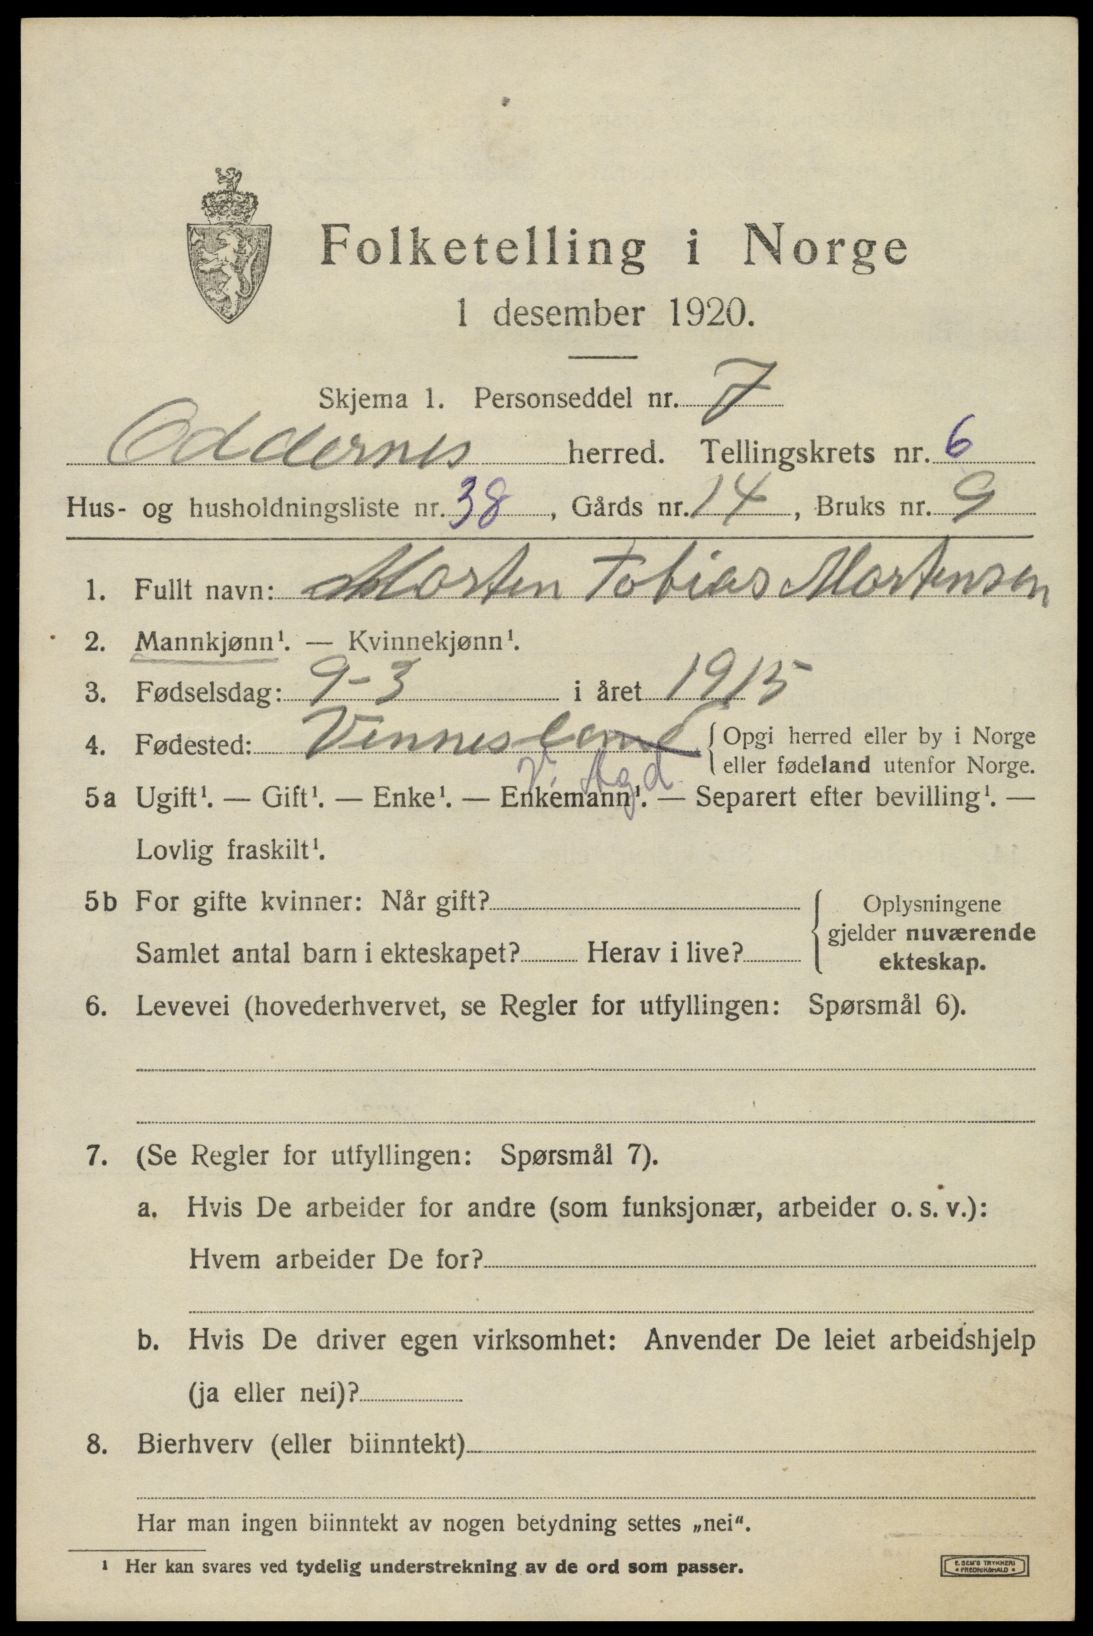 Folketelling i Norge
1 desember 1920.
Skjema 1. Personseddel nr. 7
Oddernes herred. Tellingskrets nr. 6
Hus- og husholdningsliste nr. 38, Gårds nr. 14, Bruks nr. 9
1. Fullt navn: Morten Tobias Mortensen
2. Mannkjønn¹. — Kvinnekjønn¹.
3. Fødselsdag: 9-3 i året 1915
4. Fødested: Vennesland { Opgi herred eller by i Norge
eller fødeland utenfor Norge.
V. Agd.
5a Ugift¹. — Gift¹. — Enke¹. — Enkemann¹. — Separert efter bevilling¹. —
Lovlig fraskilt¹.
5b For gifte kvinner: Når gift?
Samlet antal barn i ekteskapet? Herav i live?
Oplysningene
gjelder nuværende
ekteskap.
6. Levevei (hovederhvervet, se Regler for utfyllingen: Spørsmål 6).
7. (Se Regler for utfyllingen: Spørsmål 7).
a. Hvis De arbeider for andre (som funksjonær, arbeider o. s. v.):
Hvem arbeider De for?
b. Hvis De driver egen virksomhet: Anvender De leiet arbeidshjelp
(ja eller nei)?
8. Bierhverv (eller biinntekt)
Har man ingen biinntekt av nogen betydning settes „nei“.
¹ Her kan svares ved tydelig understrekning av de ord som passer.
E. SEM'S TRYKKERI
• FREDRIKSHALD •